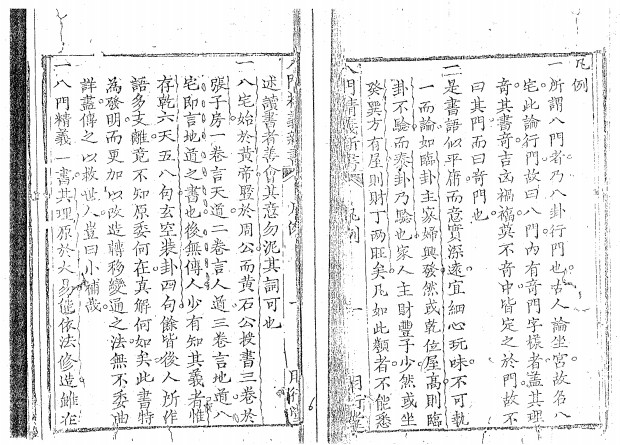 凡例
一所謂八門者乃八卦行門也古人論坐宮故名八
宅此論行門故曰八門內有奇門字樣者蓋其理
奇其書奇吉凶禍福莫不奇中皆定之於門故不
曰其門而曰奇門也
二是書語似平庸而意實深遠宜細心玩味不可執
一而論如臨卦主家婦興發然或乾位屋高則臨
卦不驗而泰卦乃驗也家人主財豐子少然或坐
癸巽方有屋則財丁两旺矣凡如此類者不能悉
八門精義新書
凡例
一
述讀書者善會其意勿泥其詞可也
一八宅始於黃帝聖於周公而黃石公授書三卷於
張子房一卷言天道二卷言人道三卷言地道八
宅即言地道之書也後無傳人少有知其義者惟
存乾六天五八句玄空装卦四句餘皆後人所作
語多支離竟不知原委何在真解何如矣此書特
為發明而更加以改造轉移變通之法無不委曲
詳盡傳之以救世人豈曰小補哉
一八門精義一書其理原於大易能依法修造雖在